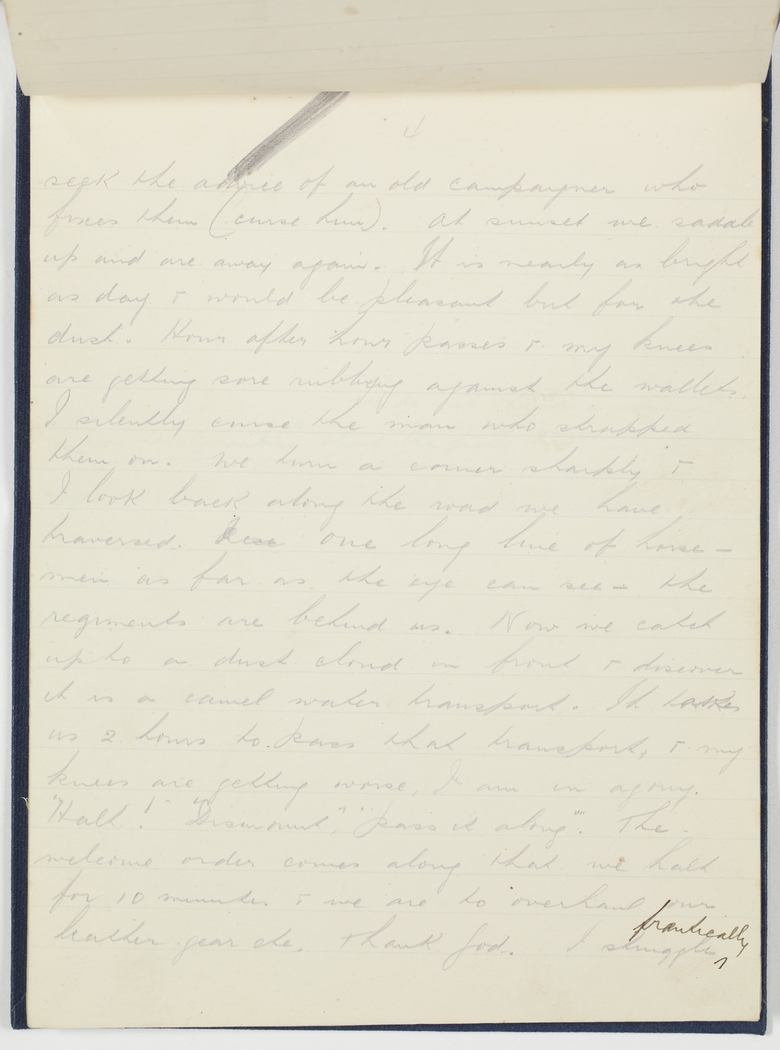 4
seek the advice of an old campaigner who
fixes them (curse him). At sunset we saddle
up and are away again. It is nearly as bright
as day & would be pleasant but for the
dust. Hour after hour passes & my knees
are getting sore rubbing against the wallets.
I silently curse the man who strapped
them on. We turn a corner sharply &
I look back along the road we have
traversed. one long line of horse-
men as far as the eye can see - the
regiments are behind us. Now we catch
up to a dust cloud in front & discover
it is a camel water transport. It takes
us 2 hours to pass that transport, & my
knees are getting worse, I am in agony.
"Halt!" "Dismount", "pass it along". The
welcome order comes along that we halt
for 10 minutes & we are to overhaul our
leather gear etc. Thank God. I struggle
frantically